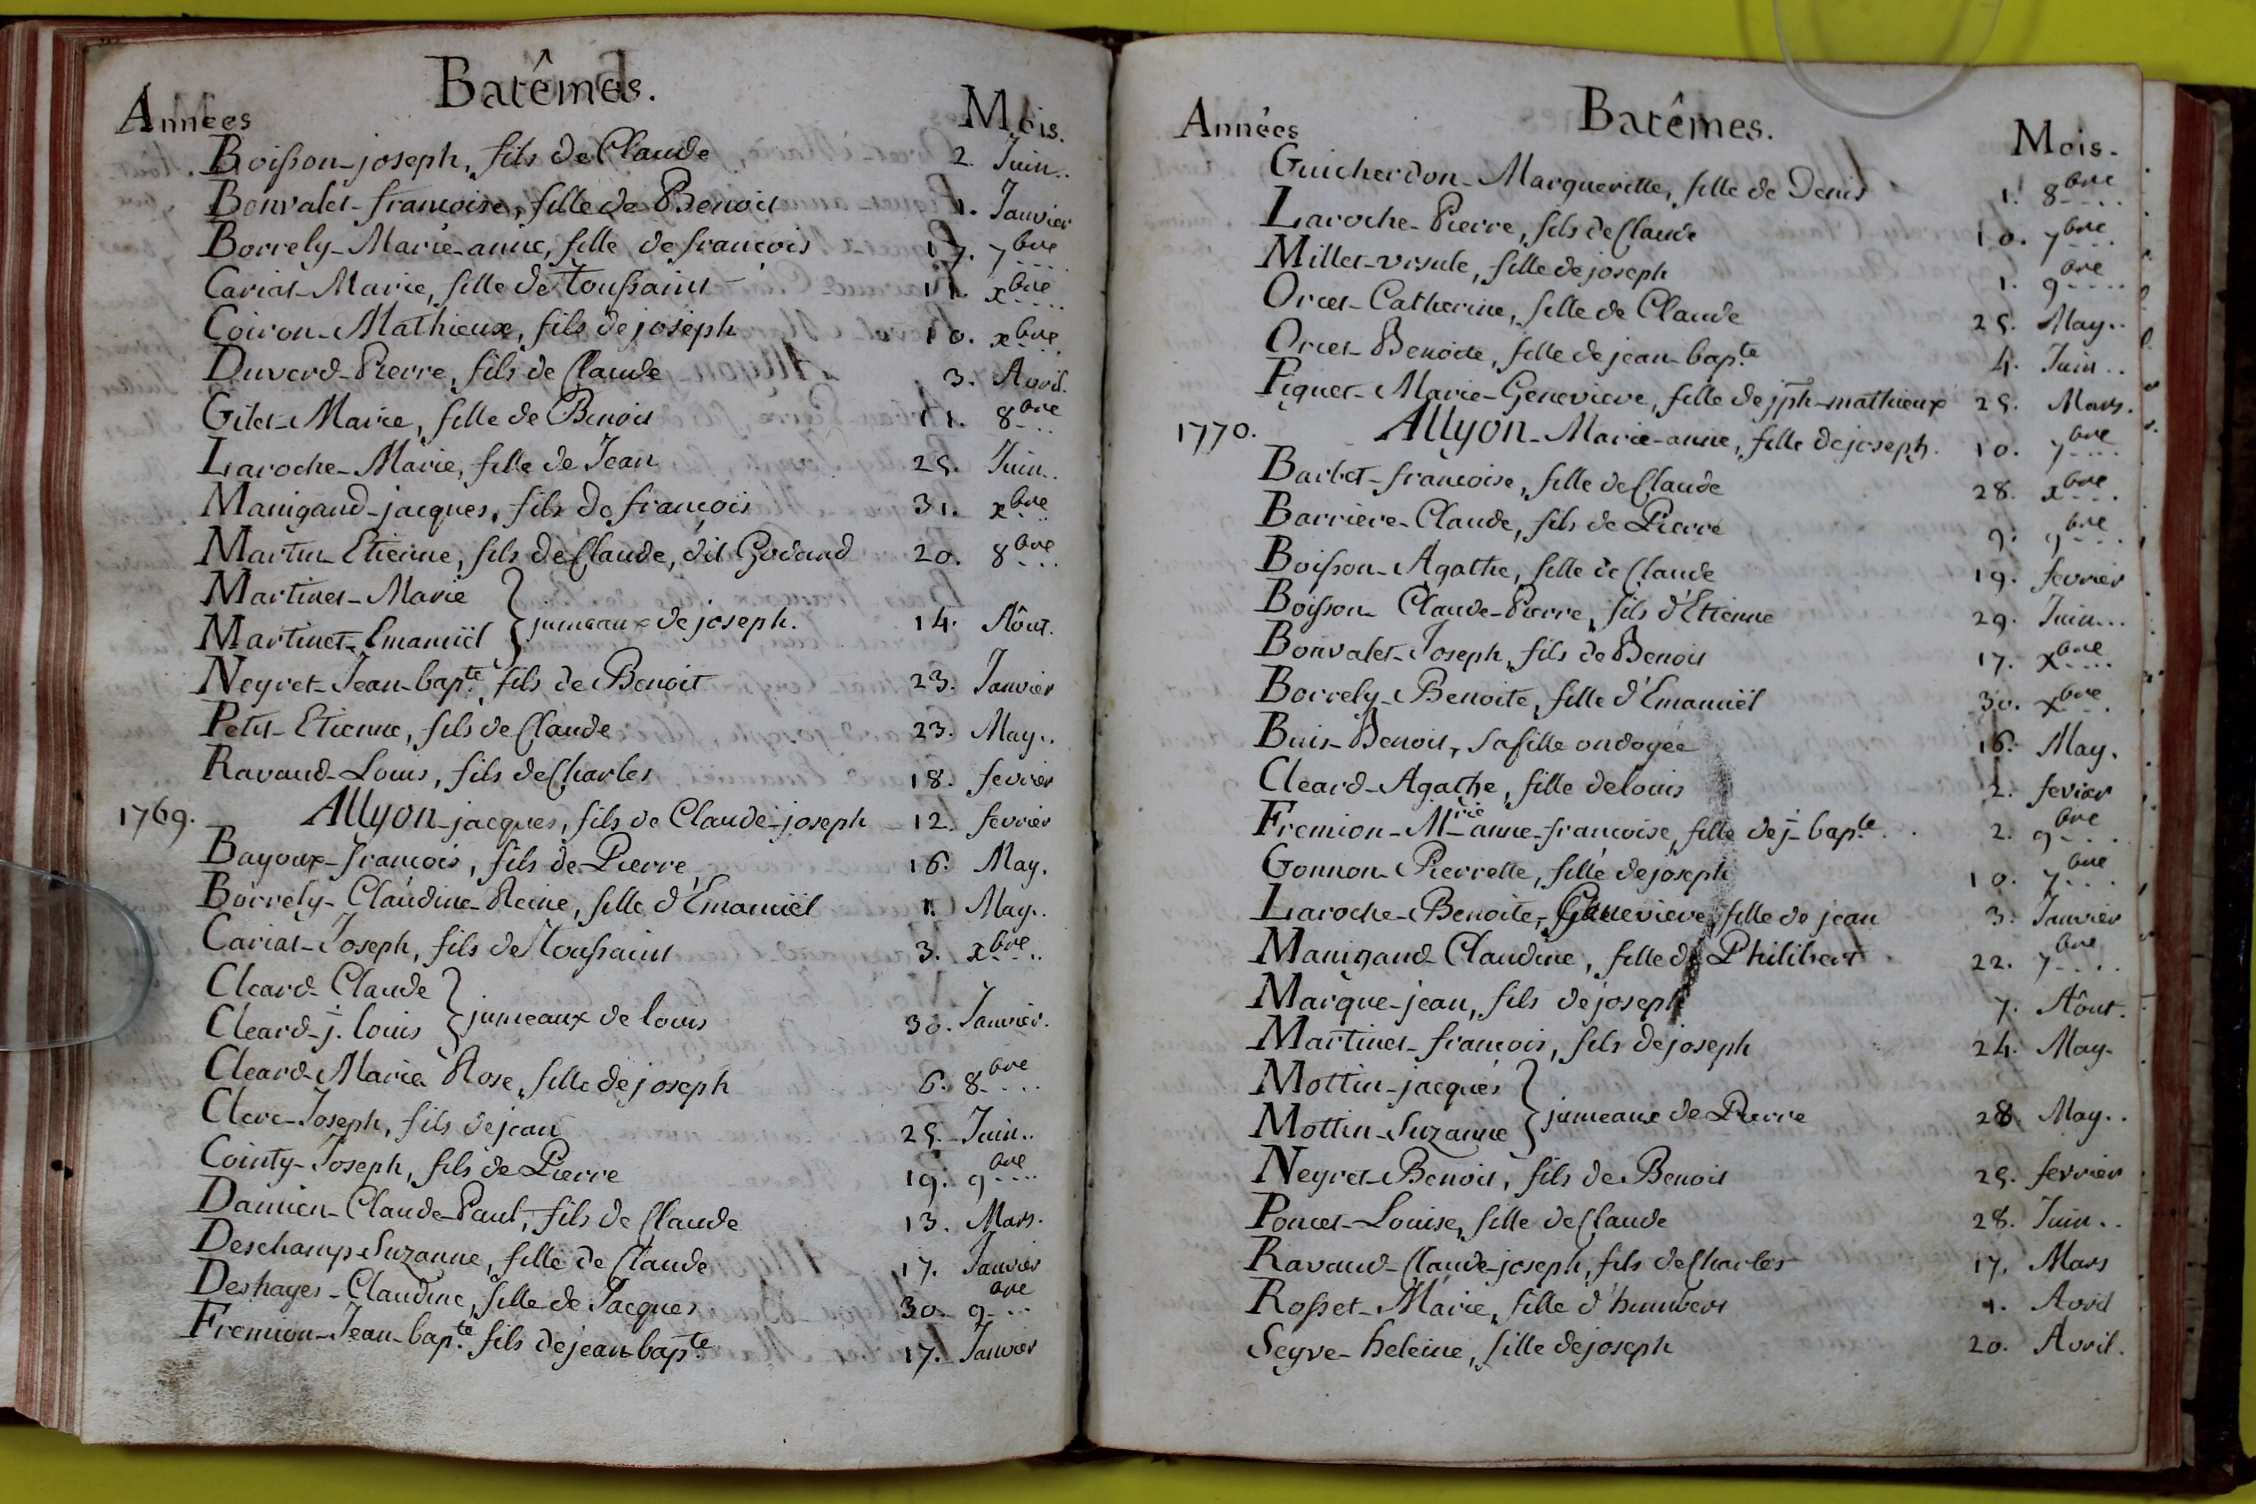 Batêmes.
Années Mois.
Boisson-joseph, fils de Claude 2. Juin..
Bonvalet-francoise, fille de Benoit 1. Janvier
Borrely-Marie-anne, fille de francois 17. 7bre
Cariat-Marie, fille de toussaint 11. xbre
Coiron-Mathieux, fils de joseph 10. xbre
Duverd-Pierre, fils de Claude 3. Avril.
Gilet-Marie, fille de Benoit 11. 8bre
Laroche-Marie, fille de Jean 25. Juin..
Manigand-jacques, fils de françois 31. xbre
Martin-Etienne, fils de Claude, dit Godard 20. 8bre
Martinet-Marie
jumeaux de joseph. 14. Aôut.
Martinet-Emanuël
Neyret-Jean-bapte, fils de Benoit 23. Janvier
Petit-Etienne, fils de Claude 23. May..
Ravaud-Louis, fils de Charles 18. fevrier
1769. Allyon-jacques, fils de Claude-joseph 12. fevrier
Bayoux-francois, fils de Pierre 16. May.
Borrely-Claudine-Reine, fille d'Emanuël 1. May..
Cariat-Joseph, fils de toussaint 3. xbre
Cleard-Claude
jumeaux de louis 30. Janvier.
Cleard-j. louis
Cleard-Marie Rose, fille de joseph 6. 8bre
Clerc-Joseph, fils de jean 25. Juin..
Cointy-Joseph, fils de Pierre 19. 9bre
Damien-Claude-Paul, fils de Claude 13. Mars.
Deschamp-Suzanne, fille de Claude 17. Janvier
Deshayes-Claudine, fille de Jacques 30. 9bre
Fremion-Jean-bapte. fils de jean bapte 17. Janvier
Batêmes.
Années Mois.
Guicherdon-Marguerite, fille de Denis 1. 8bre
Laroche-Pierre, fils de Claude 10. 7bre
Millet-ursule, fille de joseph 1. 9bre
Orcet-Catherine, fille de Claude 25. May..
Orcet-Benoite, fille de jean-bapte 4. Juin..
Piquet-Marie-Genevieve, fille de jph-mathieux 25. Mars.
1770. Allyon-Marie-anne, fille de joseph. 10. 7bre
Barbet-francoise, fille de Claude 28. xbre
Barriere-Claude, fils de Pierre 9. 9bre
Boisson-Agathe, fille de Claude 19. fevrier
Boisson-Claude-Pierre, fils d'Etienne 29. Juin...
Bonvalet-Joseph, fils de Benoit 17. xbre
Borrely-Benoite, fille d'Emanuël 30. xbre
Buis-Benoit, sa fille ondoyée 16. May.
Cleard-Agathe, fille de louis 2. fevrier
Fremion-Mrie-anne-francoise, fille de j-bapte. 2. 9bre
Gonnon-Pierrette, fille de joseph 10. 7bre
Laroche-Benoite, Genevieve, fille de jean 3. Janvier
Manigand-Claudine, fille de Philibert 22. 7bre
Marque-jean, fils de joseph 7. Aôut.
Martinet-francois, fils de joseph 24. May.
Mottin-jacques
jumeaux de Pierre 28. May..
Mottin-Suzanne
Neyret-Benoit, fils de Benoit 25. fevrier
Poncet-Louise, fille de Claude 28. Juin..
Ravaud-Claude-joseph, fils de Charles 17. Mars
Rosset-Marie, fille d'humbert 1. Avril
Seyve-heleine, fille de joseph 20. Avril.